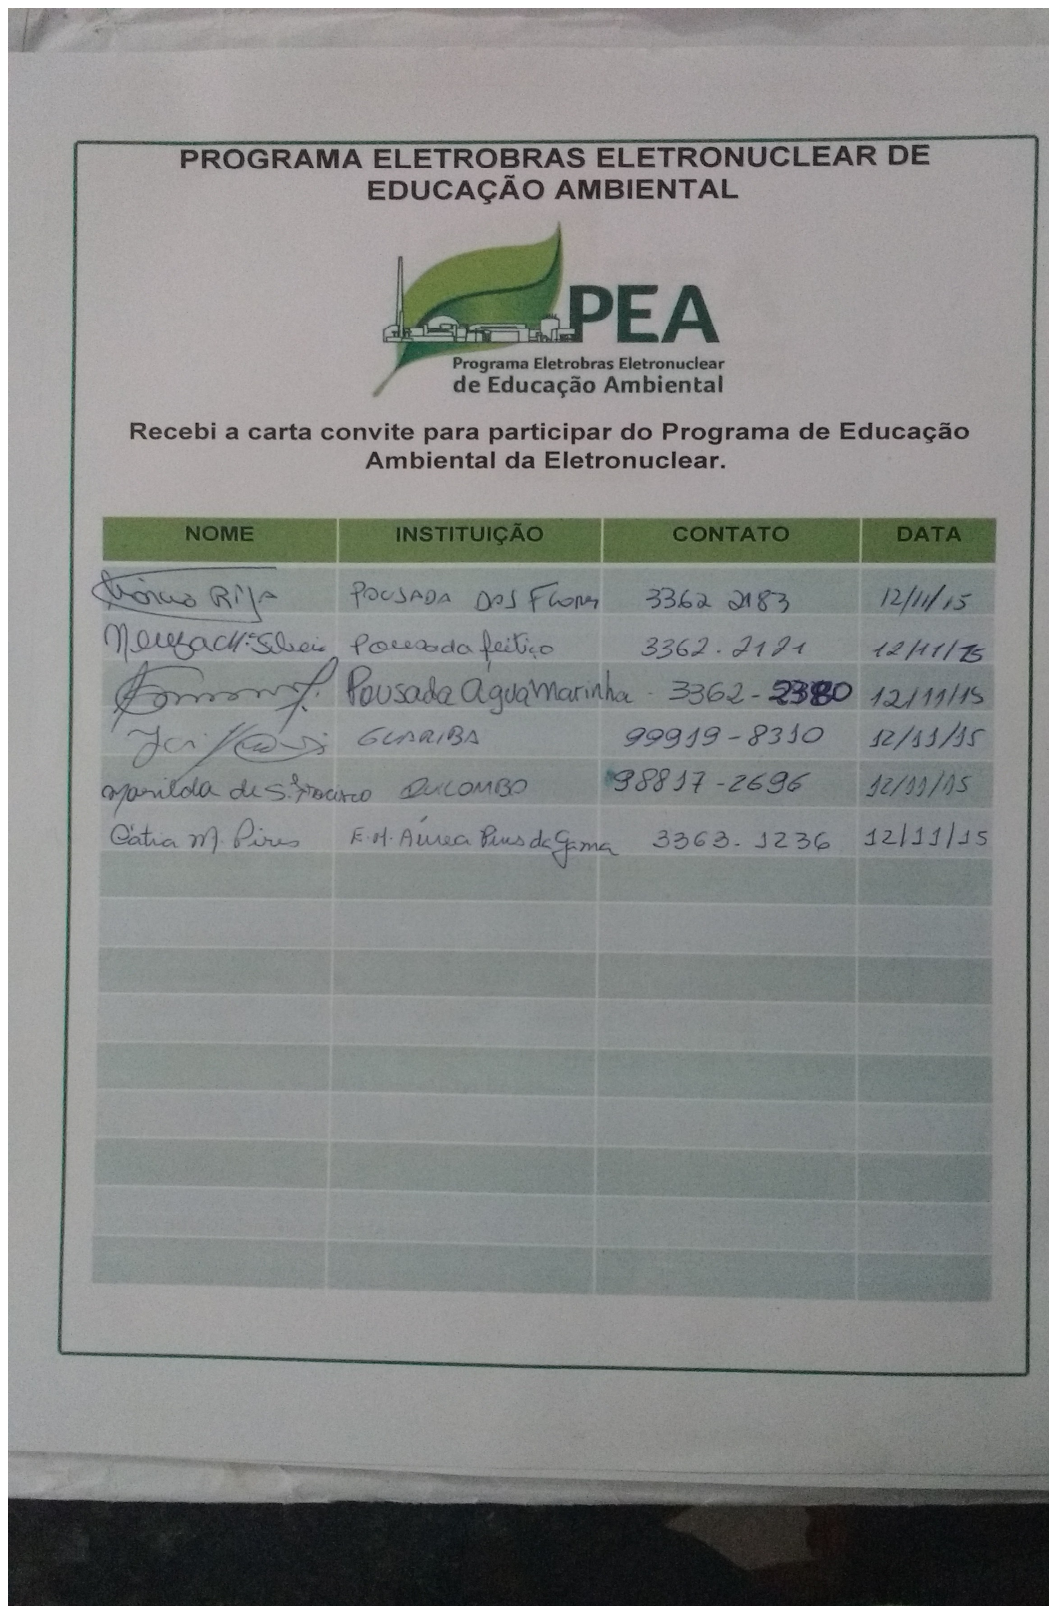 PROGRAMA ELETROBRAS ELETRONUCLEAR DE
EDUCAÇÃO AMBIENTAL
PEA
Programa Eletrobras Eletronuclear
de Educação Ambiental
Recebi a carta convite para participar do Programa de Educação
Ambiental da Eletronuclear.
NOME INSTITUIÇÃO CONTATO DATA
POUSADA DAS FLORES 3362 2183 12/11/15
Pousada feitiço 3362.2121 12/11/15
Pousada águaMarinha - 3362-2380 12/11/15
GUARIBA 99919-8310 12/11/15
Marilda de S. Francisco QUILOMBO 98817-2696 12/11/15
Cátia M. Pires E.M. Áurea Pires da Gama 3363.1236 12/11/15